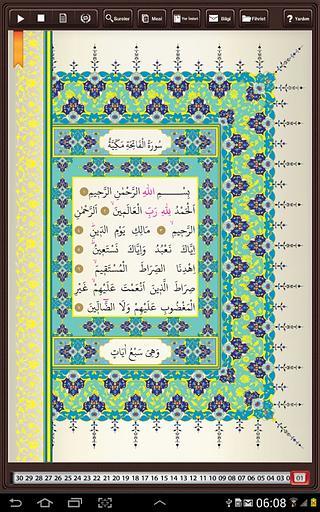 Sureler Meal Yer İmleri Bilgi Fihrist Yardım
سُورَةُ الْفَاتِحَةِ مَكِّيَّةٌ
بِسْمِ اللهِ الرَّحْمٰنِ الرَّحِيمِ
اَلْحَمْدُ لِلّٰهِ رَبِّ الْعَالَمِينَ اَلرَّحْمٰنِ
الرَّحِيمِ مَالِكِ يَوْمِ الدِّينِ
اِيَّاكَ نَعْبُدُ وَاِيَّاكَ نَسْتَعِينُ
اِهْدِنَا الصِّرَاطَ الْمُسْتَقِيمَ
صِرَاطَ الَّذِينَ اَنْعَمْتَ عَلَيْهِمْ غَيْرِ
الْمَغْضُوبِ عَلَيْهِمْ وَلَا الضَّالِّينَ
وَهِيَ سَبْعُ آيَاتٍ
30 29 28 27 26 25 24 23 22 21 20 19 18 17 16 15 14 13 12 11 10 09 08 07 06 05 04 03 0 01
06:08